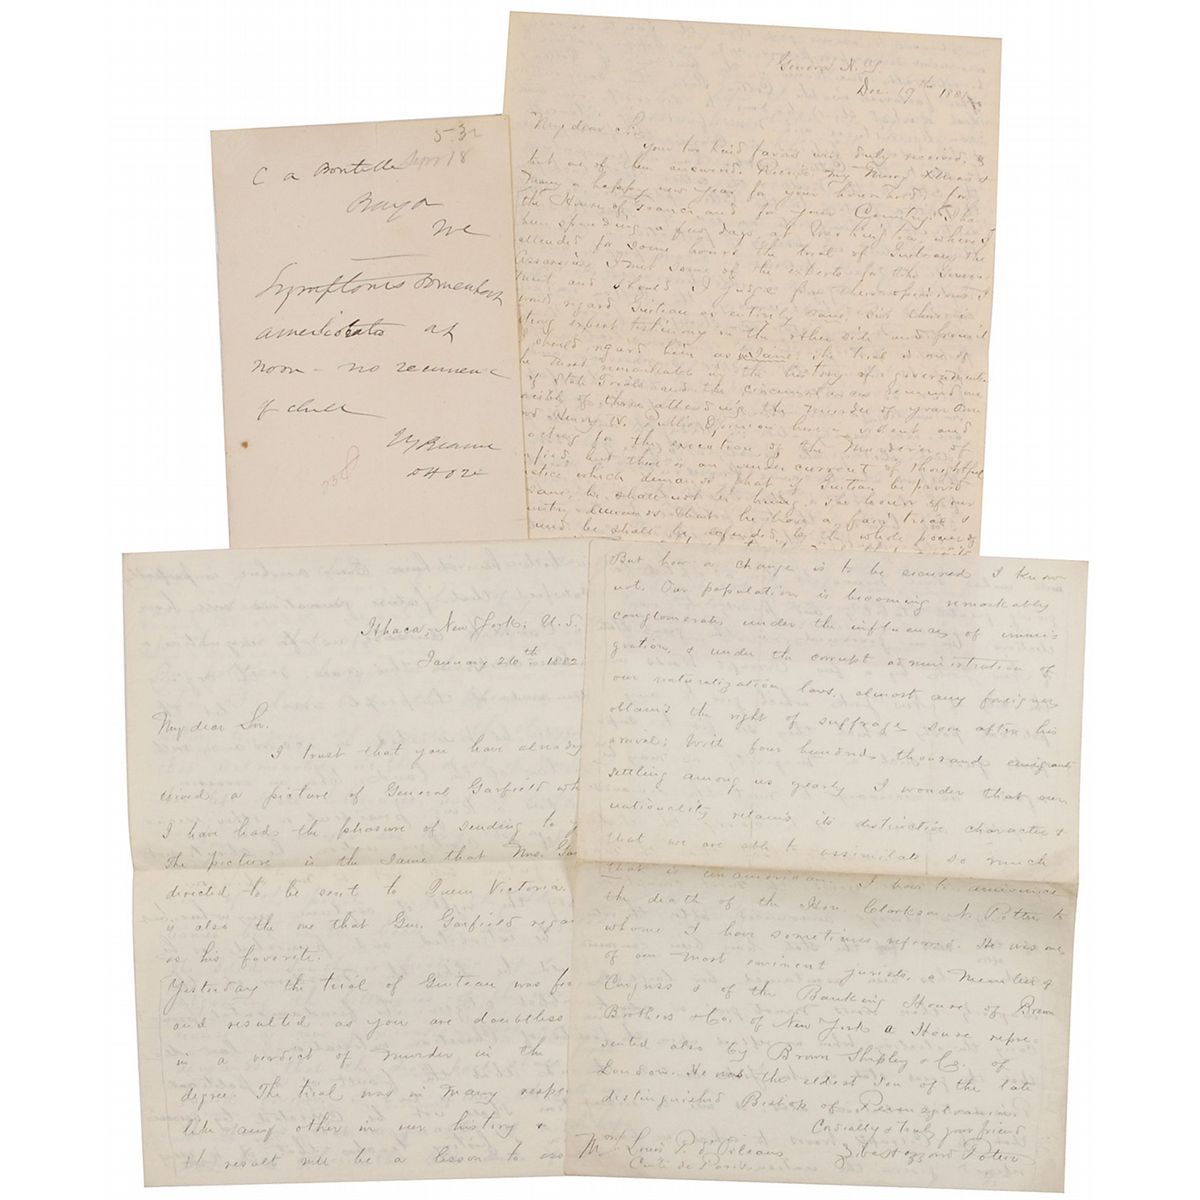 5-32
C a Boutelle
Bangor
Me
Symptoms somewhat
ameliorated at
noon - no recurrence
of chill
J S Brown
Geneva N. Y.
Dec. 19th 1881
My dear Sir
Your two kind favors were duly received, &
but one of them answered. Receive my Merry Xmas &
Many a happy new year for your household, for
the House of France and for your Country. I have
been spending a few days at Washington where I
attended for some hours the trial of Guiteau, the
Assassin. I met some of the experts for the Govern-
ment and should I judge from their opinions I
would regard Guiteau as entirely sane. But there is
expert testimony on the other side and from it
I should regard him as insane. The trial is one of
the most remarkable in the history of governments
of State Trials and the circumstances remind one
of those attending the murder of your own
Henry IV. Public Opinion here is violent and
for the execution of the Murderer of
but there is an under current of thoughtful
justice which demands that if Guiteau be proved
insane, he shall not be hung. The honor of our
country demands that he have a fair trial &
and he shall be defended by the whole power of
Ithaca, New York, U.S.
January 26th 1882
My dear Sir.
I trust that you have already
ceived a picture of General Garfield wh
I have had the pleasure of sending to y
The picture is the same that Mrs. Gar
directed to be sent to Queen Victoria.
is also the one that Gen. Garfield regar
as his favorite.
Yesterday the trial of Guiteau was fin
and resulted as you are doubtless
in a verdict of murder in the
degree. The trial was in many respec
like any other in our history &
it result will be a lesson to ass
But how a change is to be secured I know
not. Our population is becoming remarkably
conglomerate under the influences of immi
gration, & under the corrupt administration of
our naturalization laws, almost any foreigner
obtains the right of suffrage soon after his
arrival; With four hundred thousand emigrants
settling among us yearly I wonder that our
nationality retains its distinctive character &
that we are able to assimilate so much
that is unamerican. I have to announce
the death of the Hon. Clarkson N. Potter to
whome I have sometimes referred. He was one
of our most eminent jurists, a Member of
Congress & of the Banking House of Brown
Brothers & Co. of New York a House repre-
sented also by Brown Shipley & Co. of
London. He was the eldest son of the late
distinguished Bishop of Pennsylvania
Cordially & truly your friend
Monsr Louis P. d'Orleans
Comte de Paris